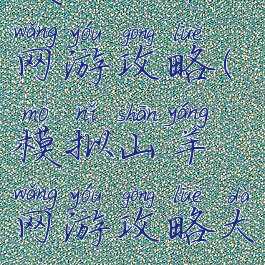 wǎng yóu gōng lüè
网游攻略(
mó nǐ shān yáng
模拟山羊
wǎng yóu gōng lüè dà
网游攻略大